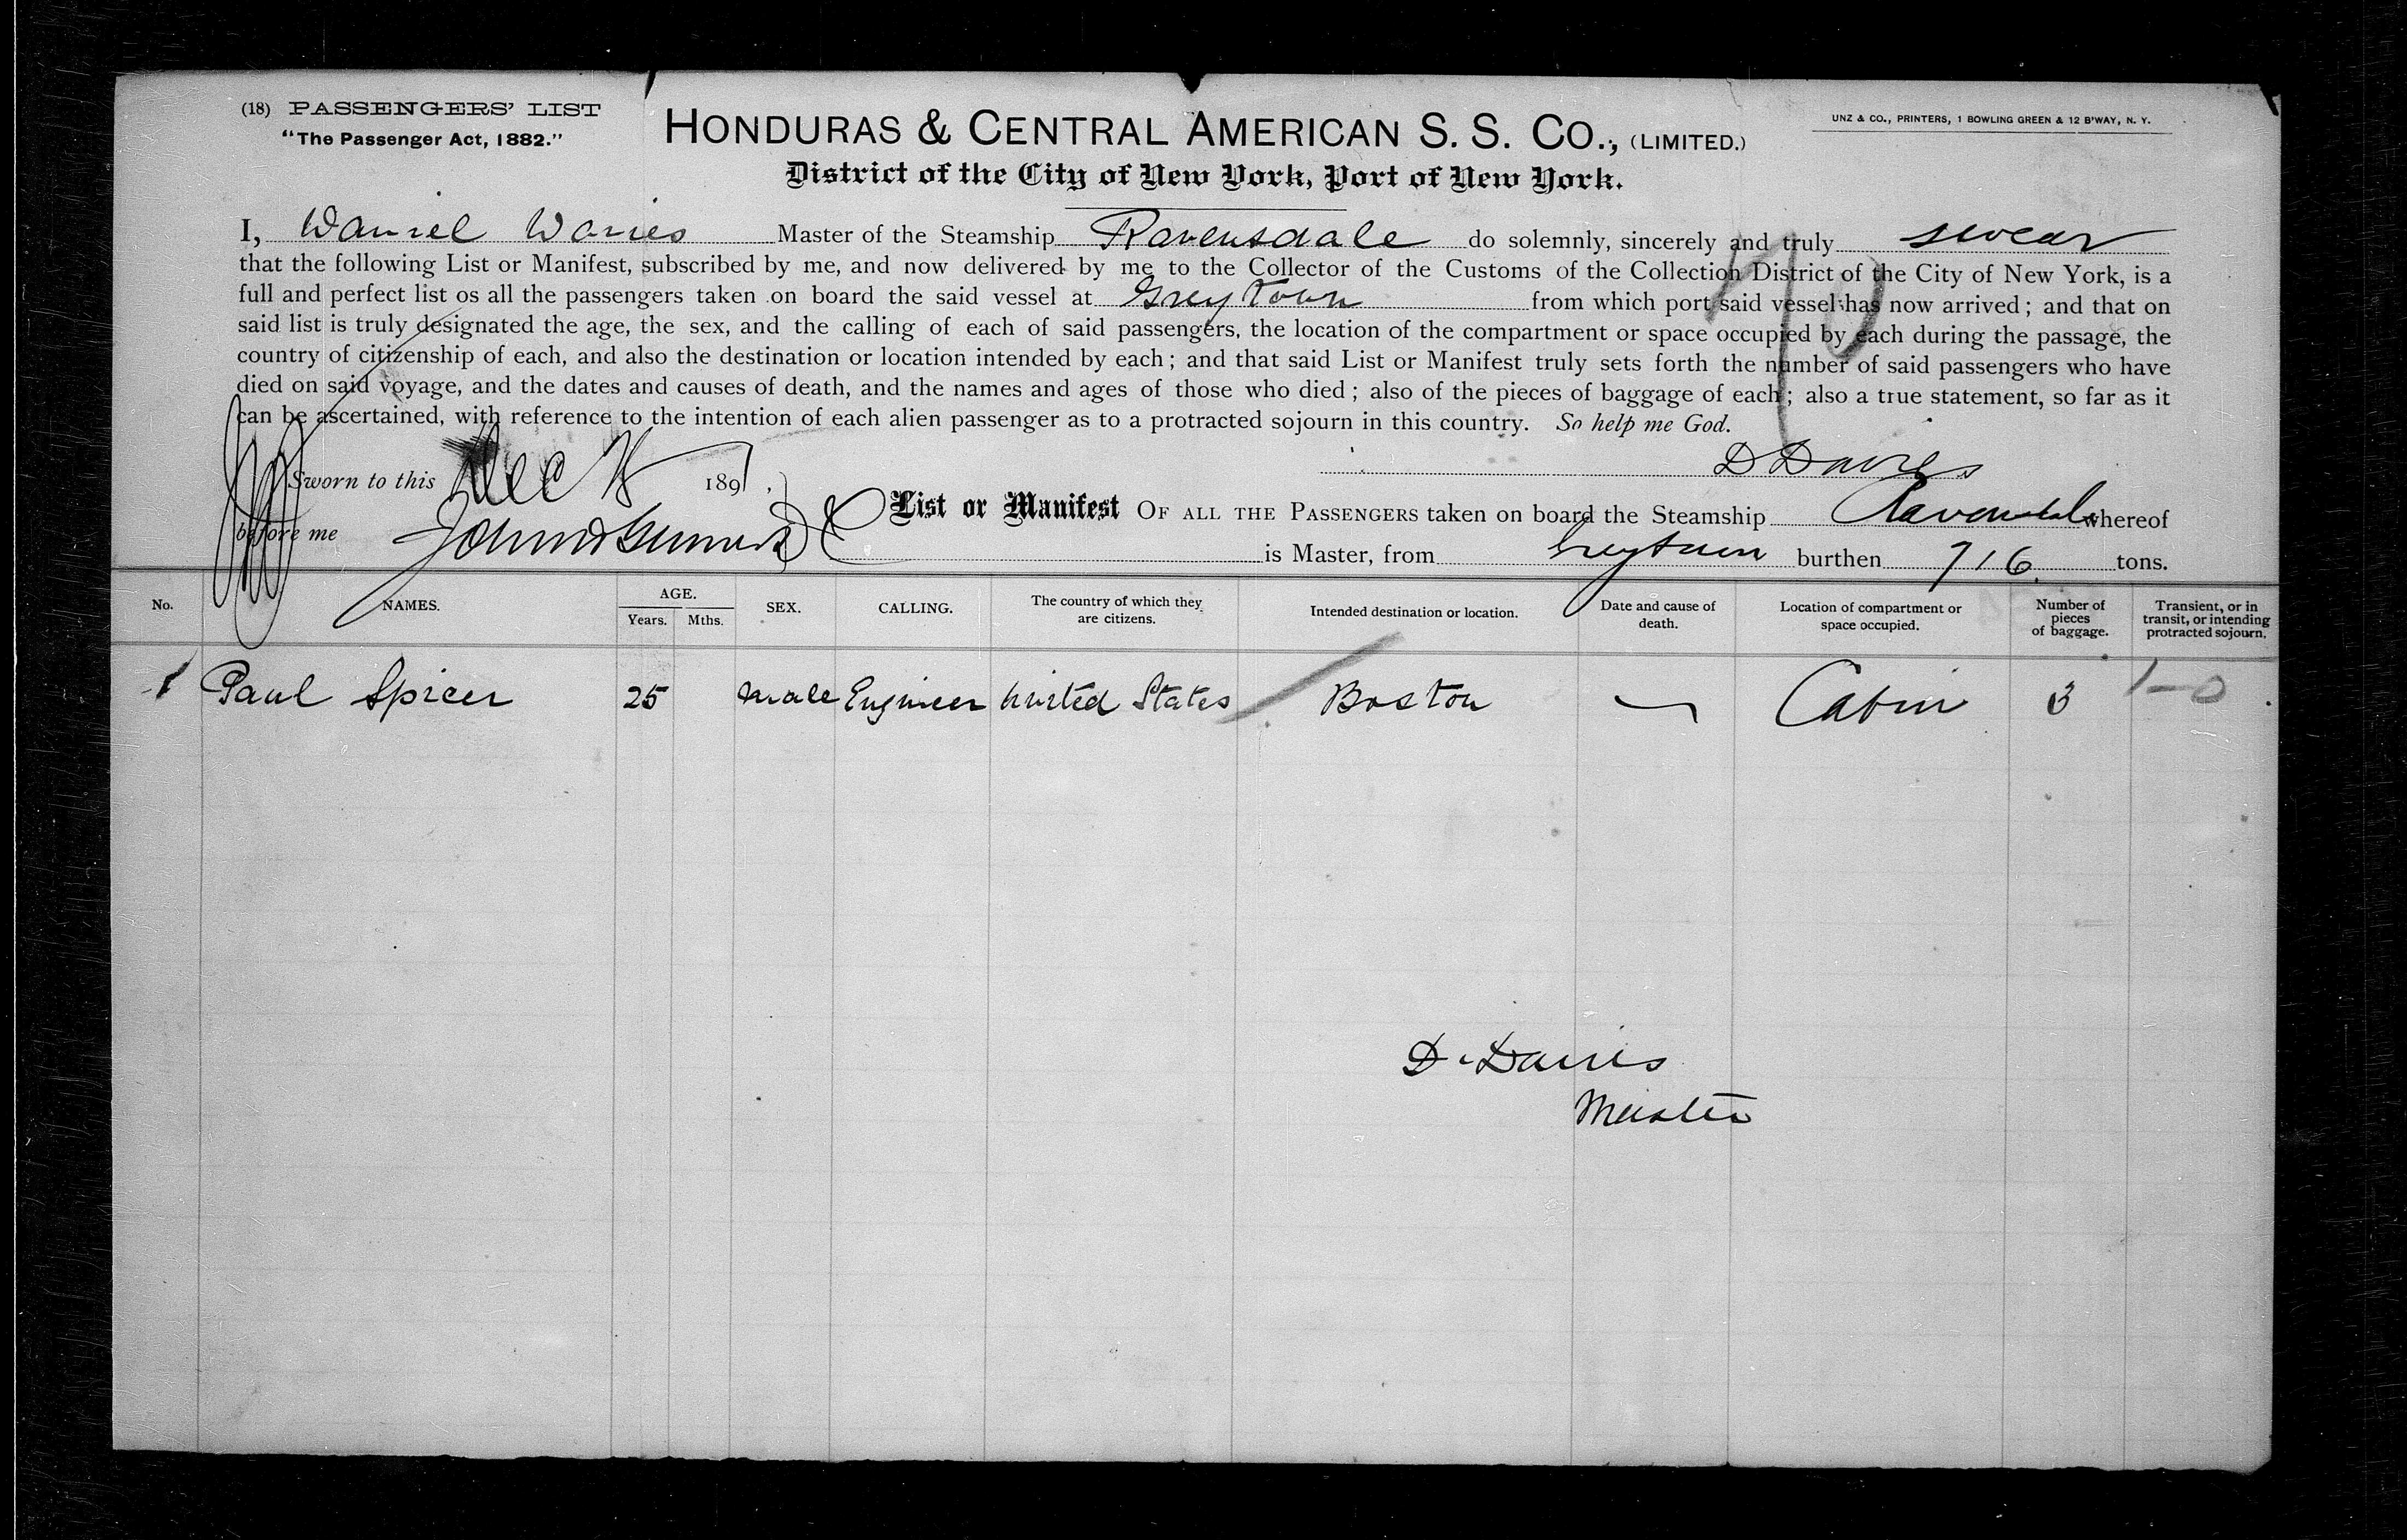 (18) PASSENGERS' LIST
"The Passenger Act, 1882."
HONDURAS & CENTRAL AMERICAN S. S. CO., (LIMITED.)
UNZ & CO., PRINTERS, 1 BOWLING GREEN & 12 B'WAY, N. Y.
District of the City of New York, Port of New York.
I, Daniel Davies Master of the Steamship Ravensdale do solemnly, sincerely and truly swear
that the following List or Manifest, subscribed by me, and now delivered by me to the Collector of the Customs of the Collection District of the City of New York, is a
full and perfect list os all the passengers taken on board the said vessel at Greytown from which port said vessel has now arrived; and that on
said list is truly designated the age, the sex, and the calling of each of said passengers, the location of the compartment or space occupied by each during the passage, the
country of citizenship of each, and also the destination or location intended by each; and that said List or Manifest truly sets forth the number of said passengers who have
died on said voyage, and the dates and causes of death, and the names and ages of those who died; also of the pieces of baggage of each; also a true statement, so far as it
can be ascertained, with reference to the intention of each alien passenger as to a protracted sojourn in this country. So help me God.
D Davies
Sworn to this Dec 1891
List or Manifest OF ALL THE PASSENGERS taken on board the Steamship Ravensdale whereof
before me
is Master, from Greytown burthen 716 tons.
No. NAMES. AGE. Years. Mths. SEX. CALLING. The country of which they are citizens. Intended destination or location. Date and cause of death. Location of compartment or space occupied. Number of pieces of baggage. Transient, or in transit, or intending protracted sojourn.
1 Paul Spicer 25 male Engineer United States Boston Cabin 3 1-0
D. Davies
Master